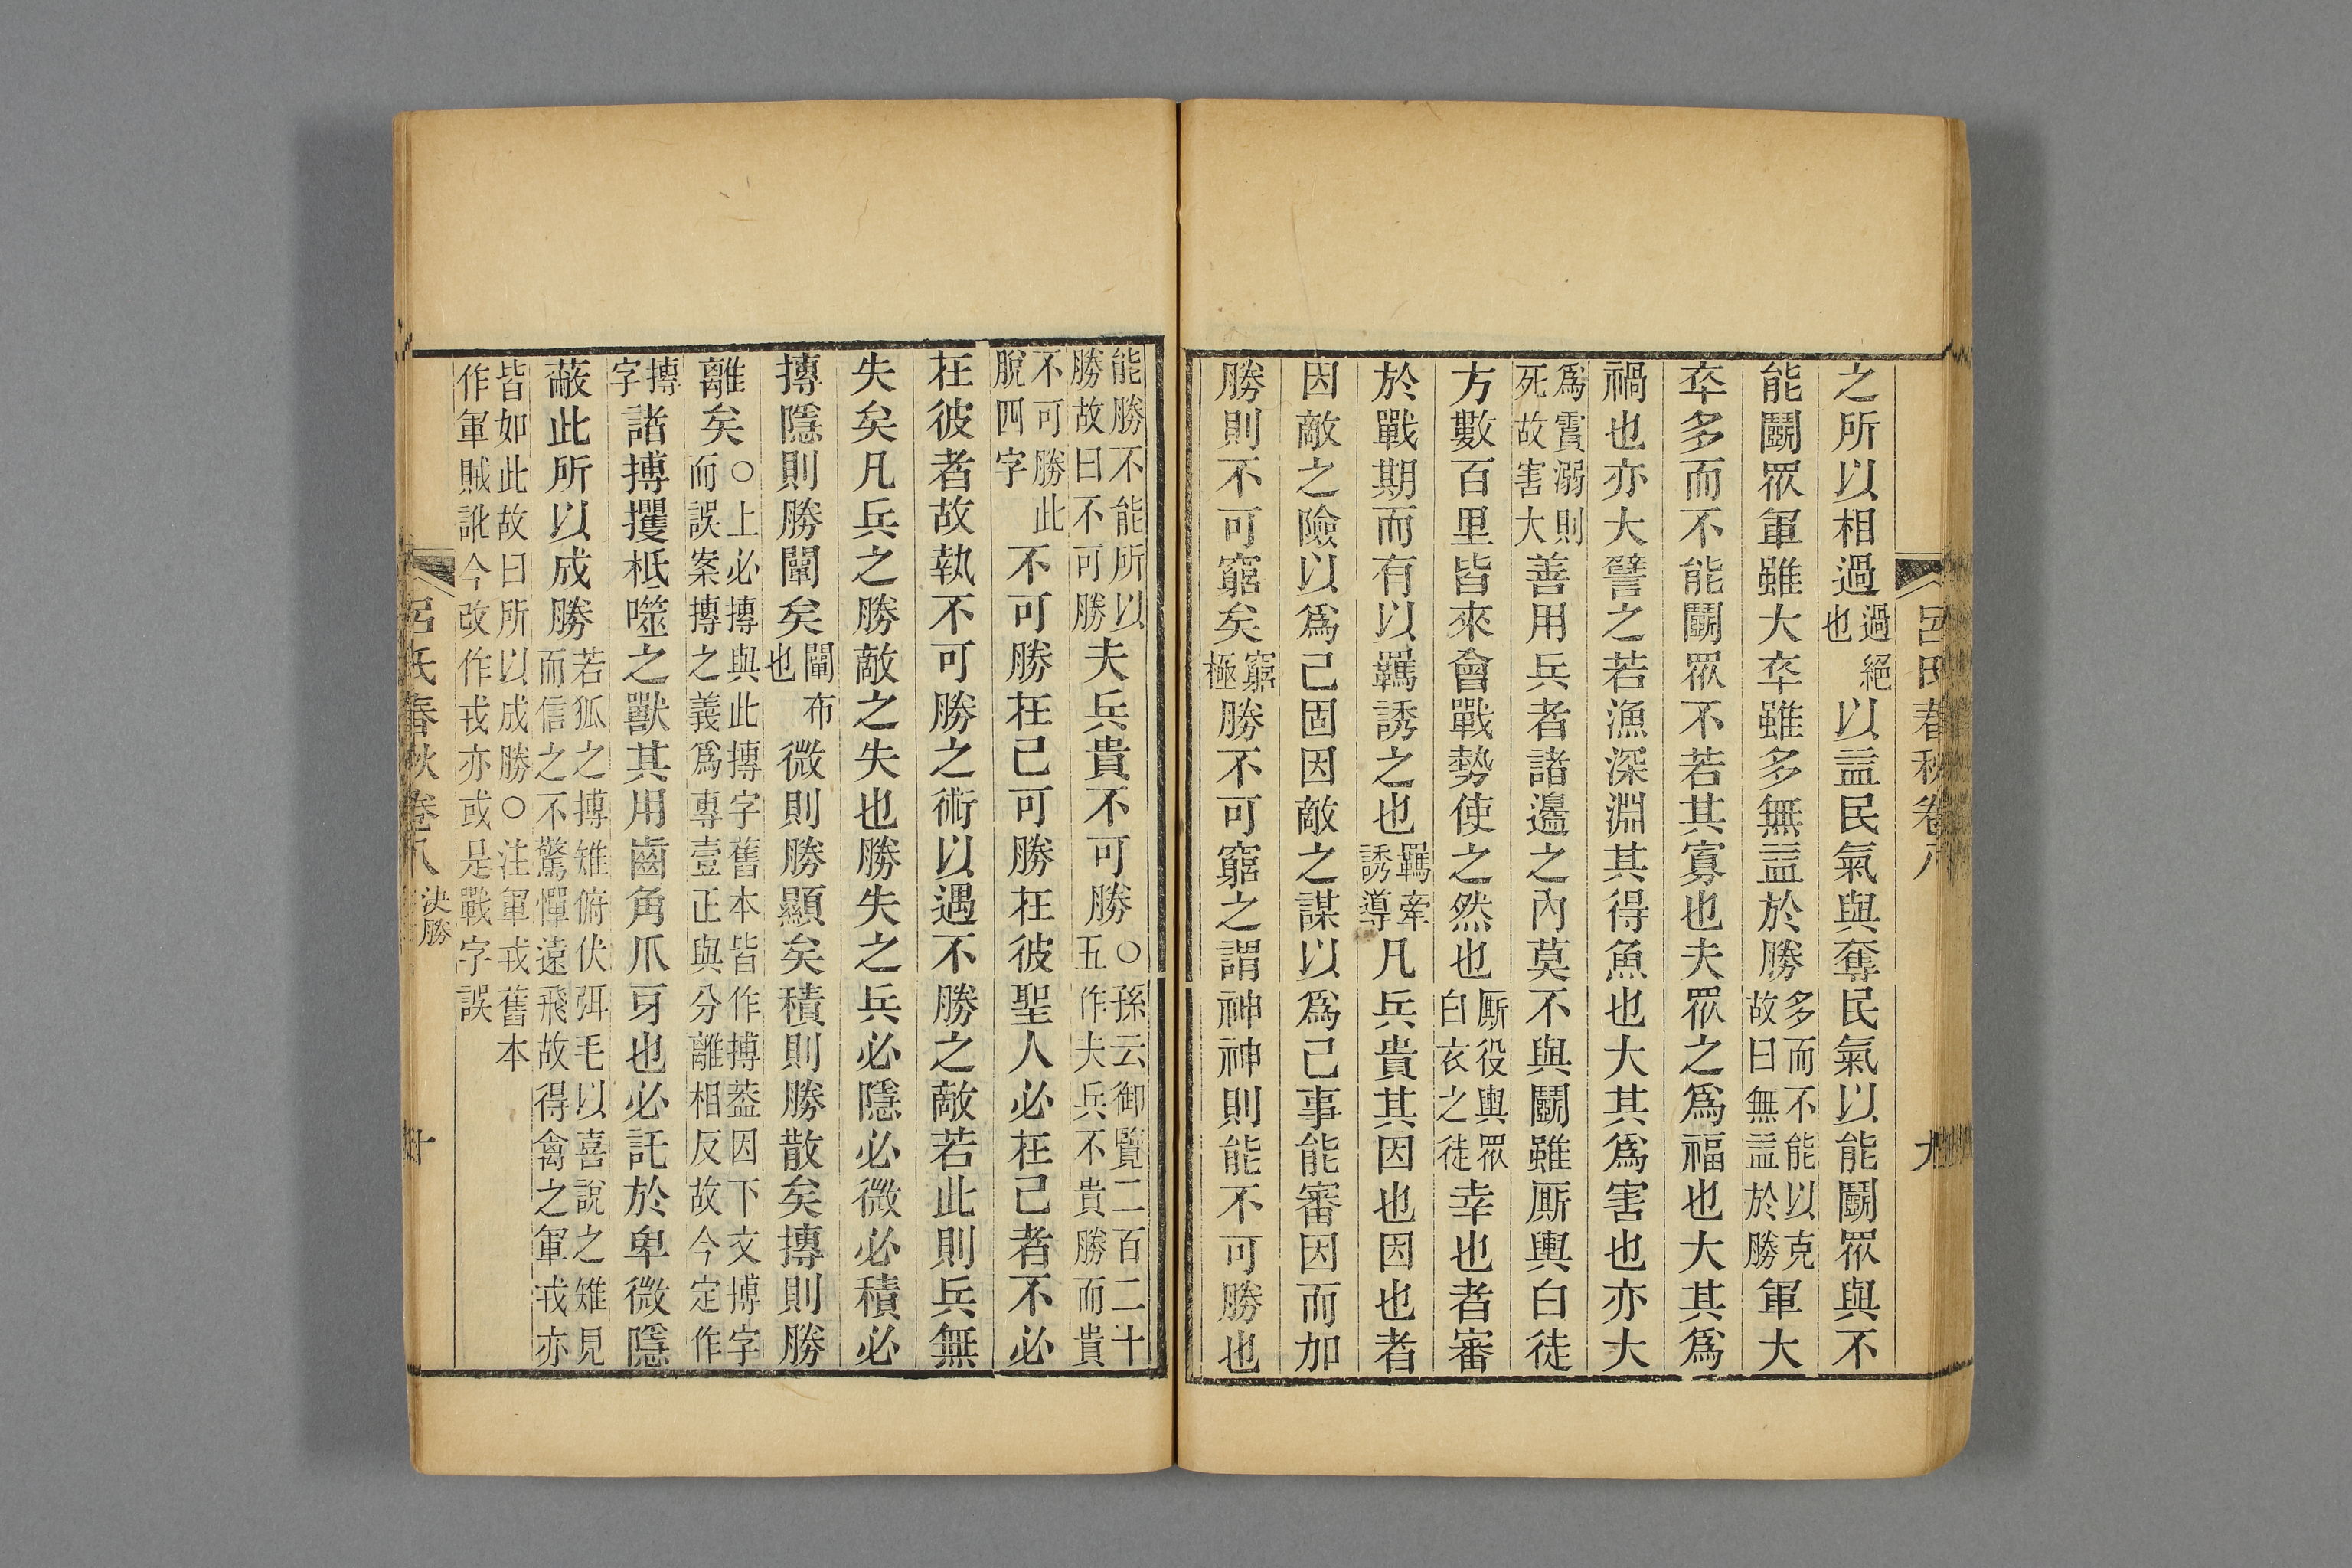 呂氏春秋卷八
九
之所以相過過絕也以益民氣與奪民氣以能鬭眾與不
能鬭眾軍雖大卒雖多無益於勝多而不能以克故曰無益於勝軍大
卒多而不能鬭眾不若其寡也夫眾之為福也大其為
禍也亦大譬之若漁深淵其得魚也大其為害也亦大
為霣溺則死故害大善用兵者諸邊之內莫不與鬭雖厮輿白徒
方數百里皆來會戰勢使之然也厮役輿眾白衣之徒幸也者審
於戰期而有以羈誘之也羈牽誘導凡兵貴其因也因也者
因敵之險以為己固因敵之謀以為己事能審因而加
勝則不可窮矣窮極勝不可窮之謂神神則能不可勝也
能勝不能所以勝故曰不可勝夫兵貴不可勝○孫云御覽二百二十五作夫兵不貴勝而貴
不可勝此脫四字不可勝在己可勝在彼聖人必在己者不必
在彼者故執不可勝之術以遇不勝之敵若此則兵無
失矣凡兵之勝敵之失也勝失之兵必隱必微必積必
摶隱則勝闡矣闡布也微則勝顯矣積則勝散矣摶則勝
離矣○上必摶與此摶字舊本皆作搏葢因下文搏字而誤案摶之義為專壹正與分離相反故今定作
摶字諸搏攫柢噬之獸其用齒角爪牙也必託於卑微隱
蔽此所以成勝若狐之搏雉俯伏弭毛以喜說之雉見而信之不驚憚遠飛故得禽之軍戎亦
皆如此故曰所以成勝○注軍戎舊本作軍賊訛今改作戎亦或是戰字誤
呂氏春秋卷八 決勝
十